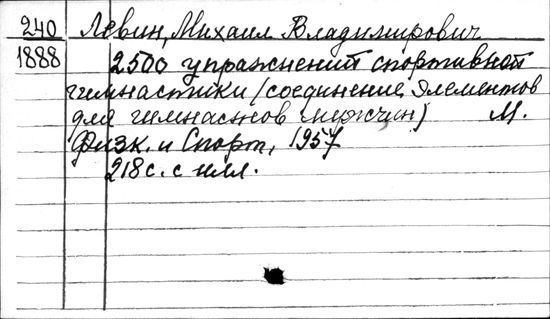 240 Левин, Михаил Владимирович
1888 2500 упражнений спортивной
гимнастики (соединение элементов
для гимнастов мужчин) М.
Физк. и Спорт, 1957
218 с. с илл.